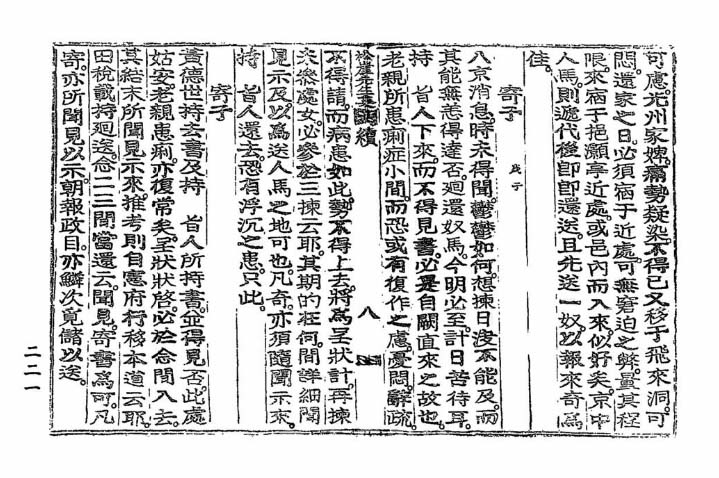 可慮光州家婢病勢疑染不得已又移于飛來洞可
悶還家之日必須宿于近處可無窘迫之弊量其程
限來宿于挹灝亭近處或邑內而入來似好矣京中
人馬則遞代後卽卽還送且先送一奴以報來奇爲
佳
寄子 戊子
入京消息時未得聞鬱鬱如何想揀日沒不能及而
其能無恙得達否廻還奴馬今明必至計日苦待耳
持 旨人下來而不得見書必是自闕直來之故也
老親所患痢症小間而恐或有復作之慮憂悶辭疏
不得請而病患如此勢不得上去將爲呈狀計再揀
未參處女必參於三揀云耶其期的在何間詳細聞
見示及以爲送人馬之地可也凡奇亦須隨聞示來
持 旨人還去恐有浮沉之患只此
寄子
黃德世持去書及持 旨人所持書並得見否此處
姑安老親患痢亦復常矣呈狀狀啓必於念間入去
其給末所聞見示來推考則自憲府行移本道云耶
田稅載持廻送念一二間當還云聞見寄書爲可凡
寄亦所聞見以示朝報政目亦鱗次覓儲以送
二二一